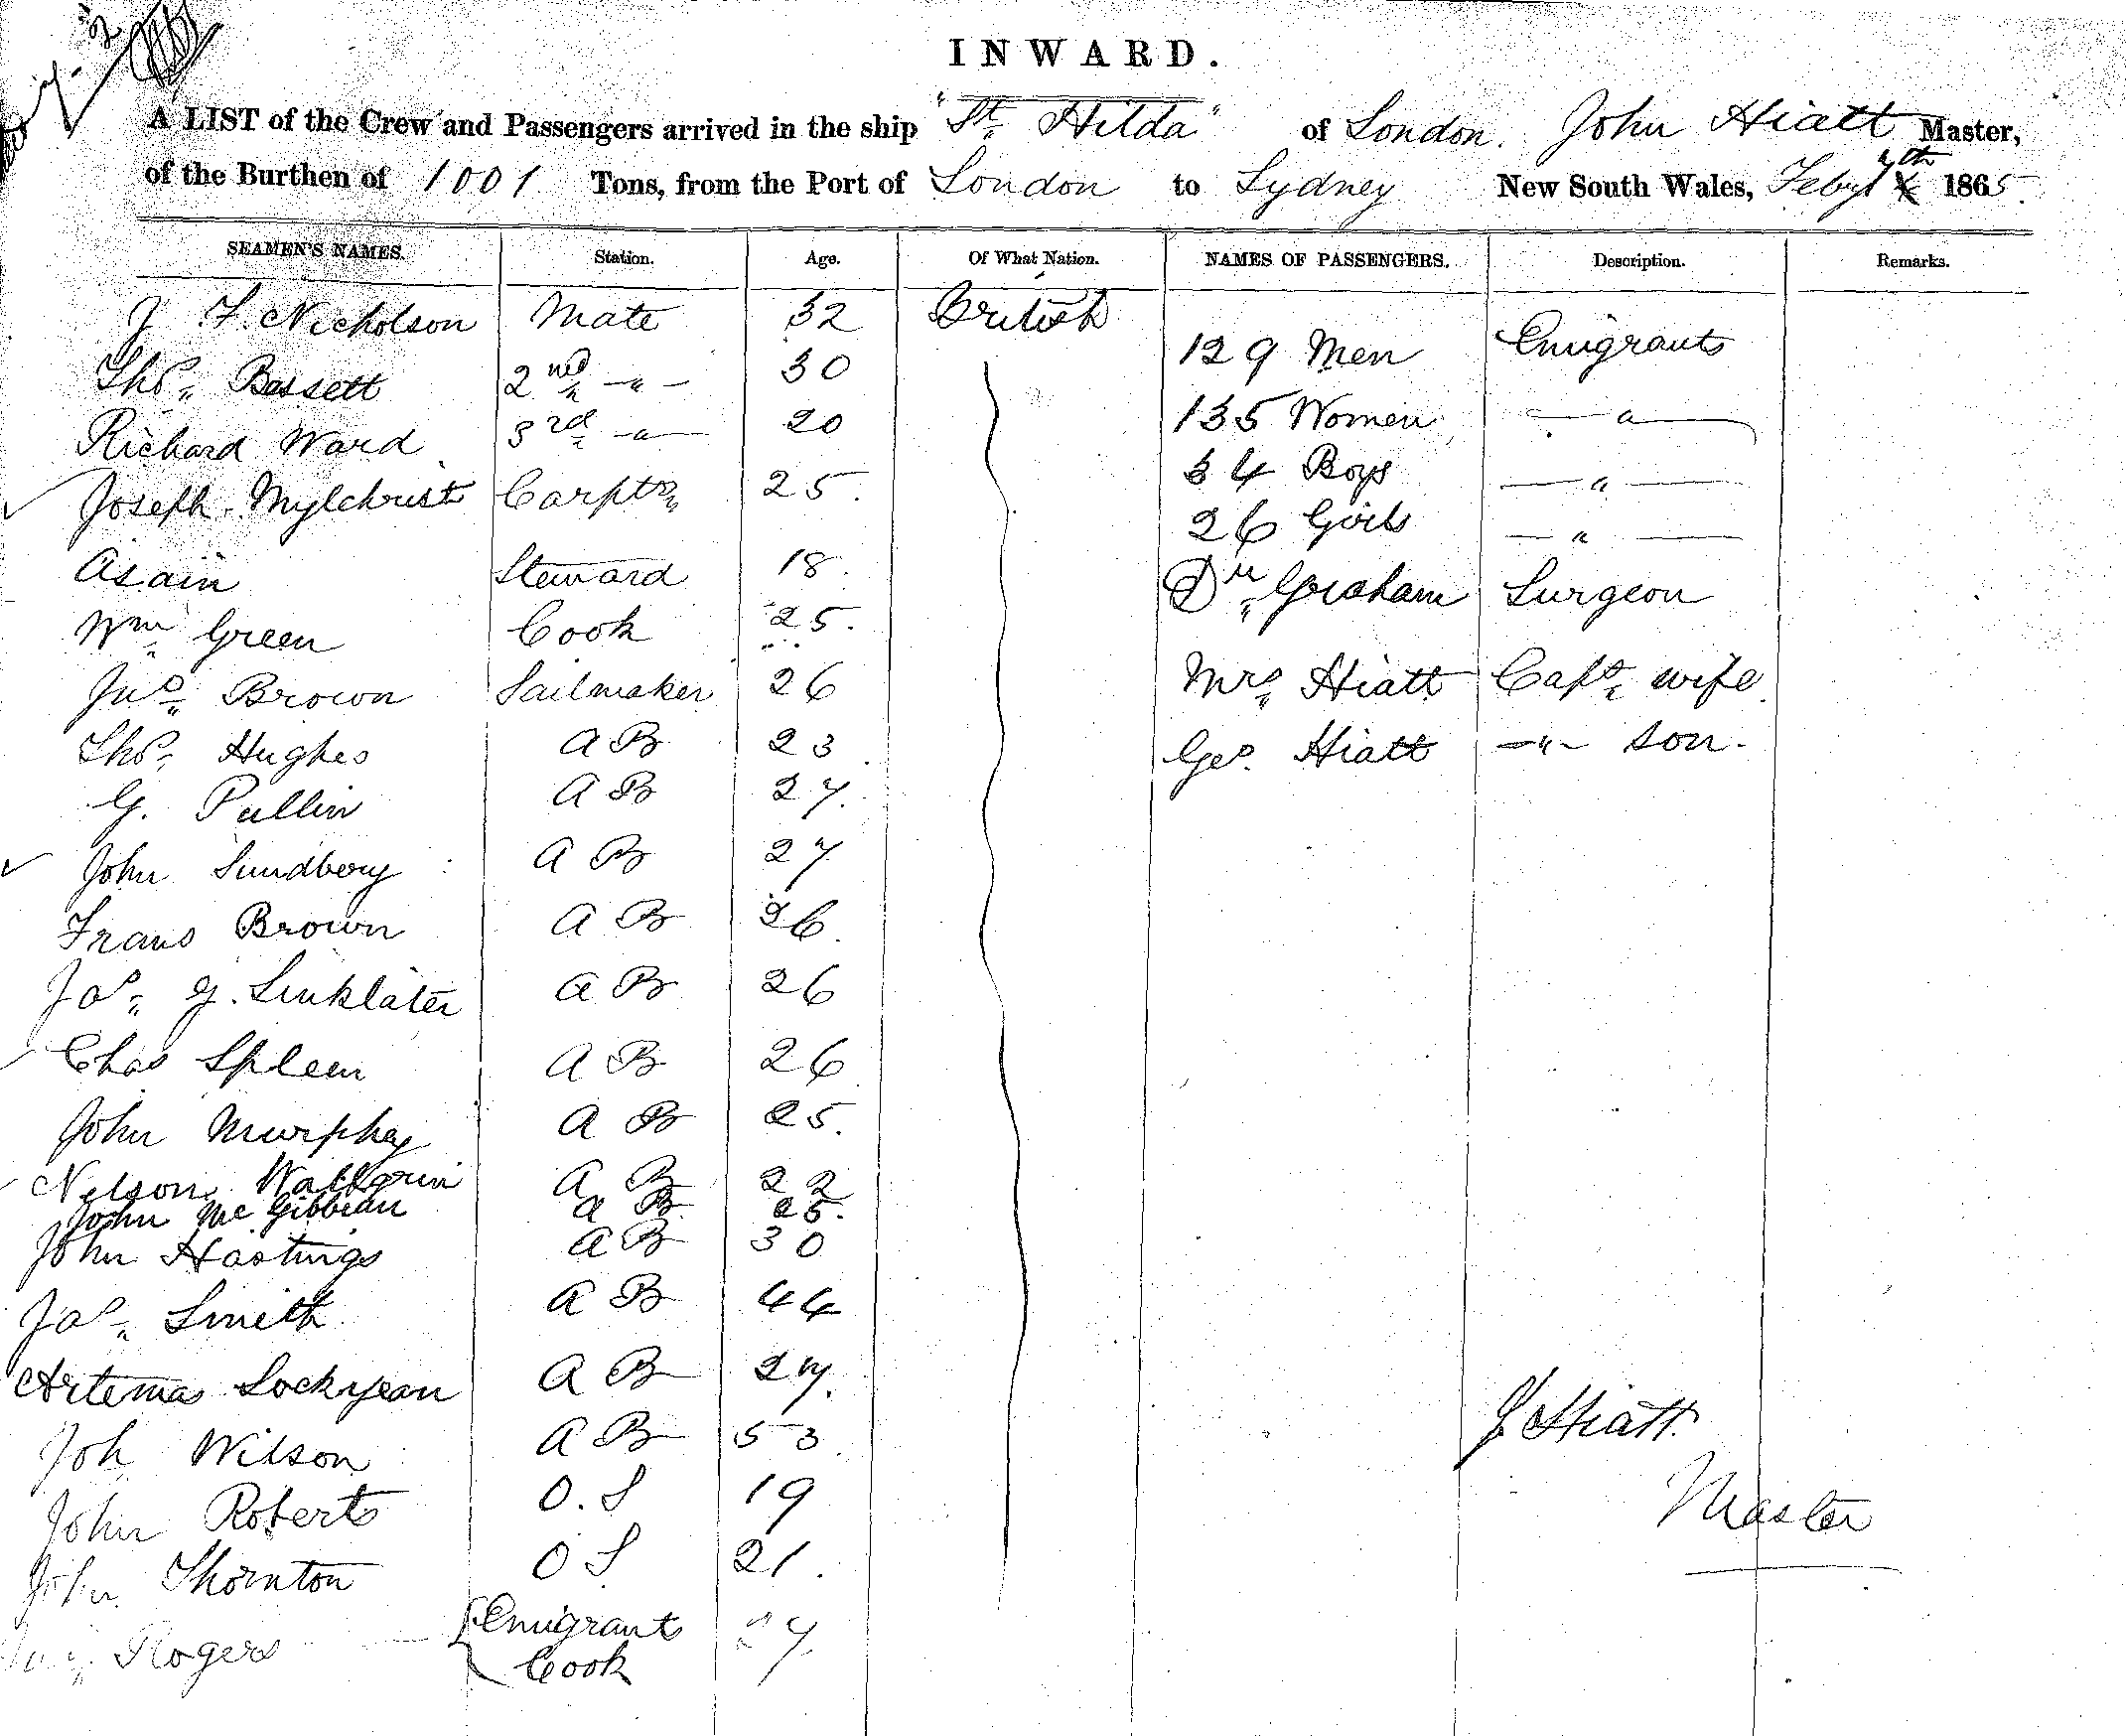 INWARD.
A LIST of the Crew and Passengers arrived in the ship "St. Hilda" of London. John Hiatt Master,
of the Burthen of 1001 Tons, from the Port of London to Sydney New South Wales, Feby 7th 1865.
SEAMEN'S NAMES. Station. Age. Of What Nation. NAMES OF PASSENGERS. Description. Remarks.
J F. Nicholson Mate 32 British
129 Men Emigrants
Thos. Bassett 2nd -"- 30
Richard Ward 3rd -"- 20
135 Women -"-
34 Boys -"-
Joseph Mylchrist Carptr. 25.
26 Girls -"-
Asain Steward 18.
Dr. Graham Surgeon
Wm Green Cook 25.
Jno. Brown Sailmaker 26
Mrs. Hiatt Capt. wife
Thos. Hughes A B 23
Geo. Hiatt -"- son.
G. Pullin A B 27.
John Sundberg A B 27
Frans Brown A B 26.
Jas. G. Linklater A B 26
Chas Spleen A B 26
John Murphey A B 25.
Nelson Wallgrin A B 22
John Mc Gibbean A B 25.
John Hastings A B 30
Jas. Smith A B 44
Artemas Lockyean A B 27.
J. Hiatt.
Joh Wilson A B 53
John Roberts O. S 19
Master
John Thornton O S 21.
Rogers Emigrant
Cook